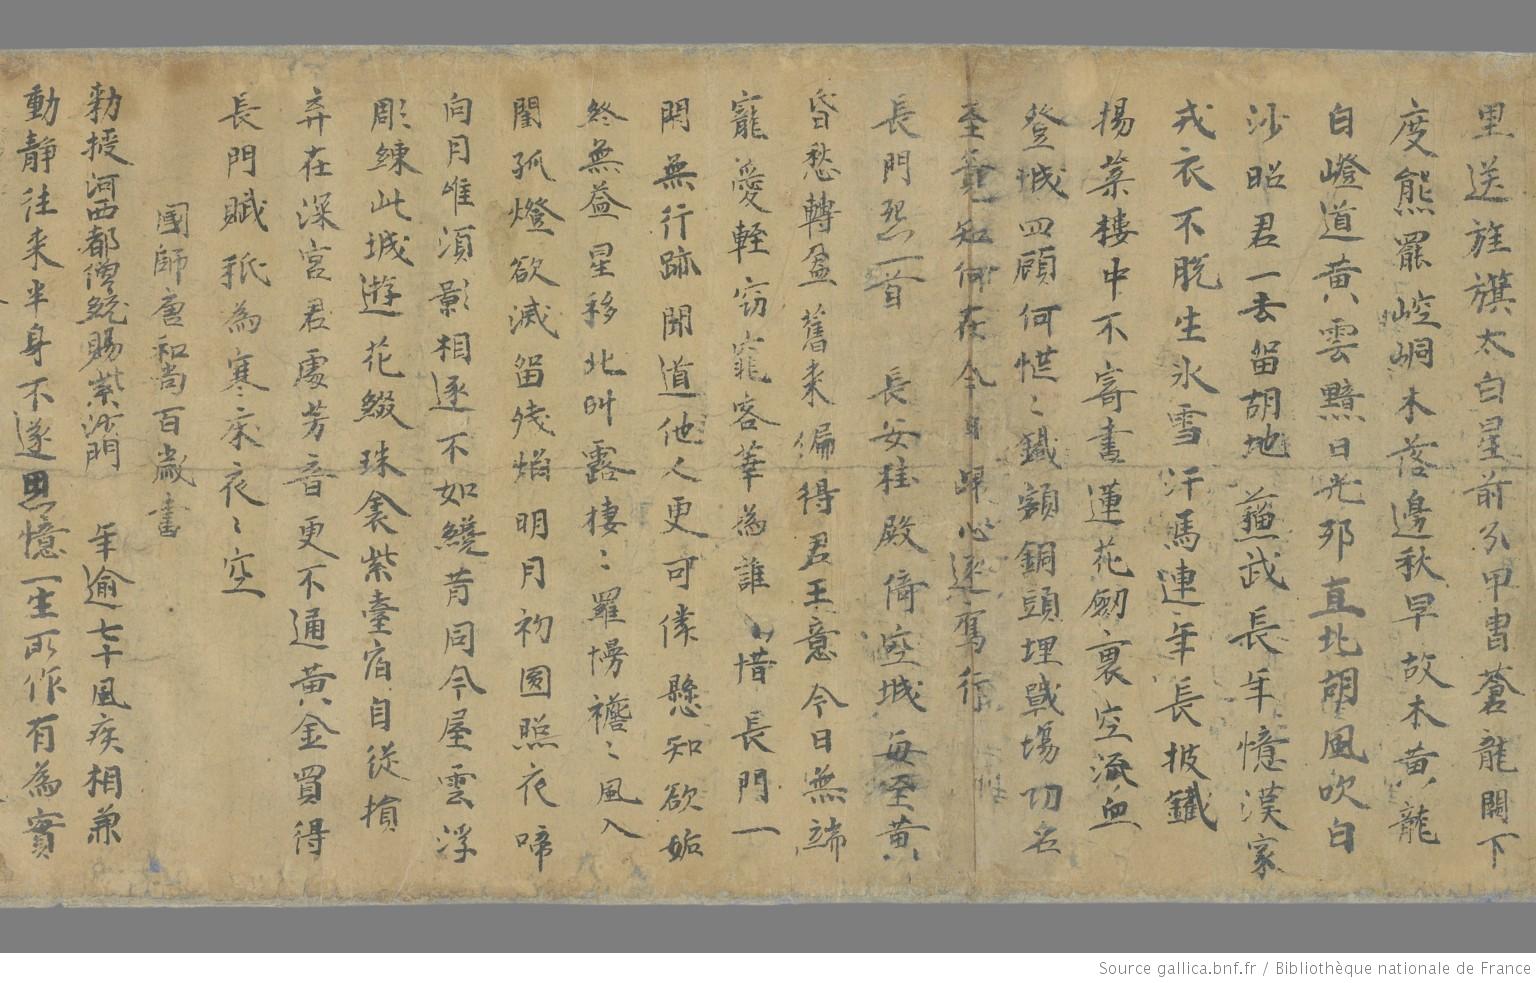 里送旌旗太白星前分甲胄蒼龍闕下
度熊羆崆峒木落邊秋早故木黄龍
自嶝道黄雲黯日光邪直北胡風吹白
沙昭君一去留胡地蘓武長年憶漢家
戎衣不脱生氷雪汗馬連年長披鐵
揚葉樓中不寄書蓮花劒裏空流血
登城四顧何惶〻鐵額銅頭埋戰塲功名
至竟知何在今日歸心逐鴈行
長門怨一首 長安桂殿倚空城每至黄
昏愁轉盈舊来偏得君王意今日無端
寵愛輕窈窕容華為誰惜長門一
閇無行跡聞道他人更可憐懸知欲妬
終無益星移北斗露棲〻羅幔襜〻風入
閨孤燈欲滅留残焰明月初圆照夜啼
向月唯須影相逐不如繞昔同今屋雲浮
彫練此城遊花綴珠衾紫臺宿自従捐
弃在深宫君處芳音更不通黄金買得
長門賦秖為寒床夜〻空
國師唐和尚百歳書
勑授河西都僧統賜紫沙門 年逾七十風疾相兼
動静往来半身不遂思憶一生所作有為實
Source gallica.bnf.fr / Bibliothèque nationale de France